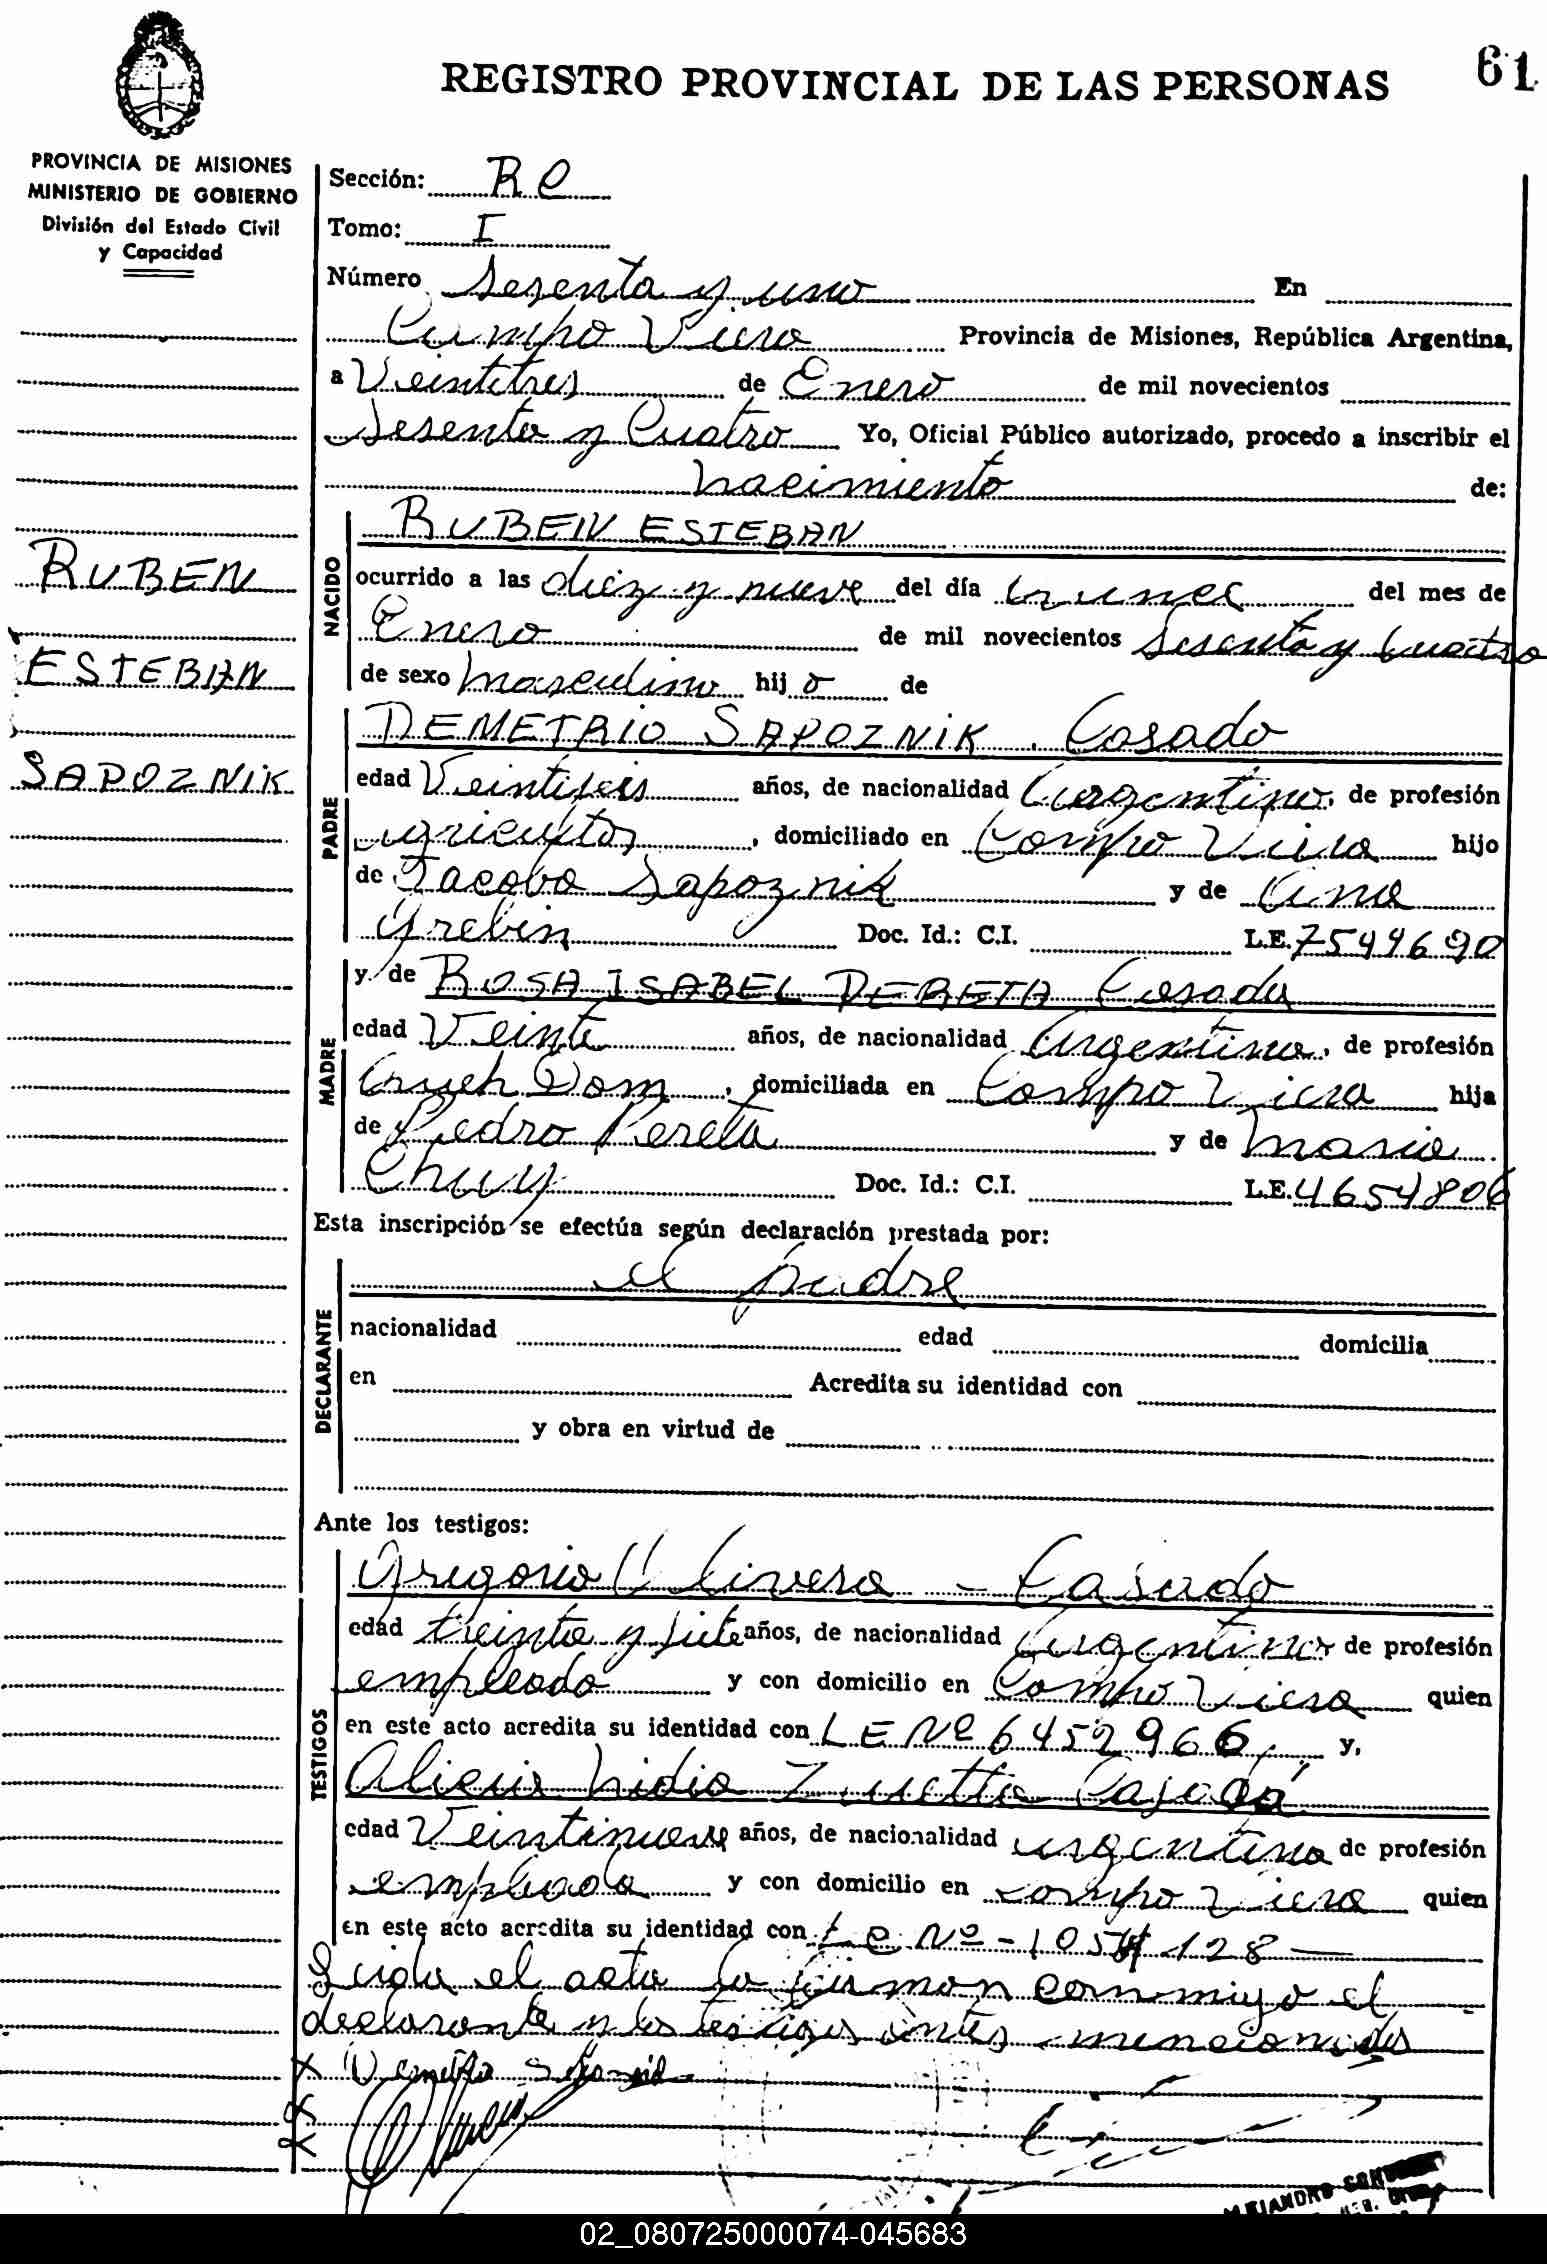 REGISTRO PROVINCIAL DE LAS PERSONAS
61
PROVINCIA DE MISIONES
MINISTERIO DE GOBIERNO
División del Estado Civil
y Capacidad
RUBEN
ESTEBAN
SAPOZNIK
Sección: R C
Tomo: I
Número Sesenta y uno En
Campo Viera Provincia de Misiones, República Argentina,
a Veintitres de Enero de mil novecientos
Sesenta y Cuatro Yo, Oficial Público autorizado, procedo a inscribir el
nacimiento de:
NACIDO
RUBEN ESTEBAN
ocurrido a las diez y nueve del día del mes de
Enero de mil novecientos Sesenta y Cuatro
de sexo masculino hijo de
PADRE
DEMETRIO SAPOZNIK . Casado
edad Veintiseis años, de nacionalidad Argentino, de profesión
agricultor, domiciliado en Campo Viera hijo
de Jacobo Sapoznik y de Ana
Grebin Doc. Id.: C.I. L.E. 7544690
MADRE
y de ROSA ISABEL PERETA Casada
edad Veinte años, de nacionalidad Argentina, de profesión
Dom, domiciliada en Campo Viera hija
de Pedro Pereta y de Maria
Chuy Doc. Id.: C.I. L.E. 4654806
Esta inscripción se efectúa según declaración prestada por:
DECLARANTE
el padre
nacionalidad edad domicilia
en Acredita su identidad con
y obra en virtud de
Ante los testigos:
TESTIGOS
Gregorio Olivera - Casado
edad treinta y siete años, de nacionalidad Argentino de profesión
empleado y con domicilio en Campo Viera quien
en este acto acredita su identidad con L E Nº 6452966 y,
Alicia Nidia Zuetta Casada
edad Veintinueve años, de nacionalidad argentina de profesión
empleada y con domicilio en Campo Viera quien
en este acto acredita su identidad con L C Nº - 1054128
Leida el acta la firman conmigo el
declarante y los testigos antes mencionados
ALEJANDRO
02_080725000074-045683